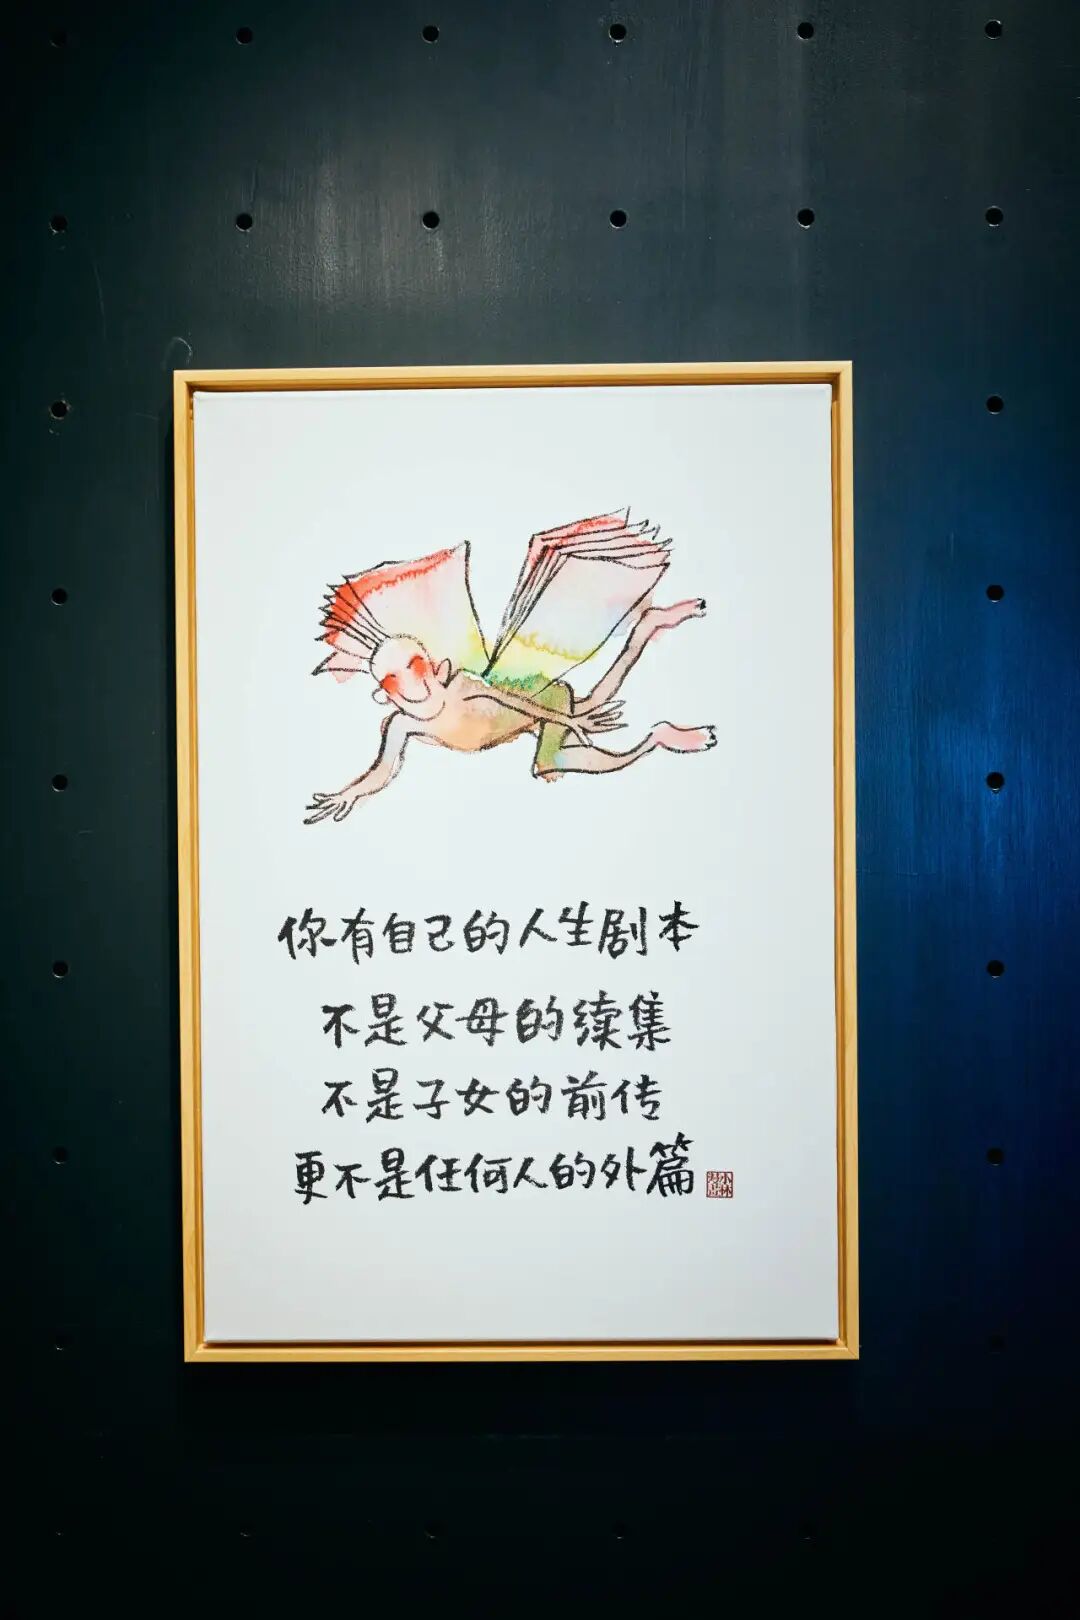 你有自己的人生剧本
不是父母的续集
不是子女的前传
更不是任何人的外篇
小林